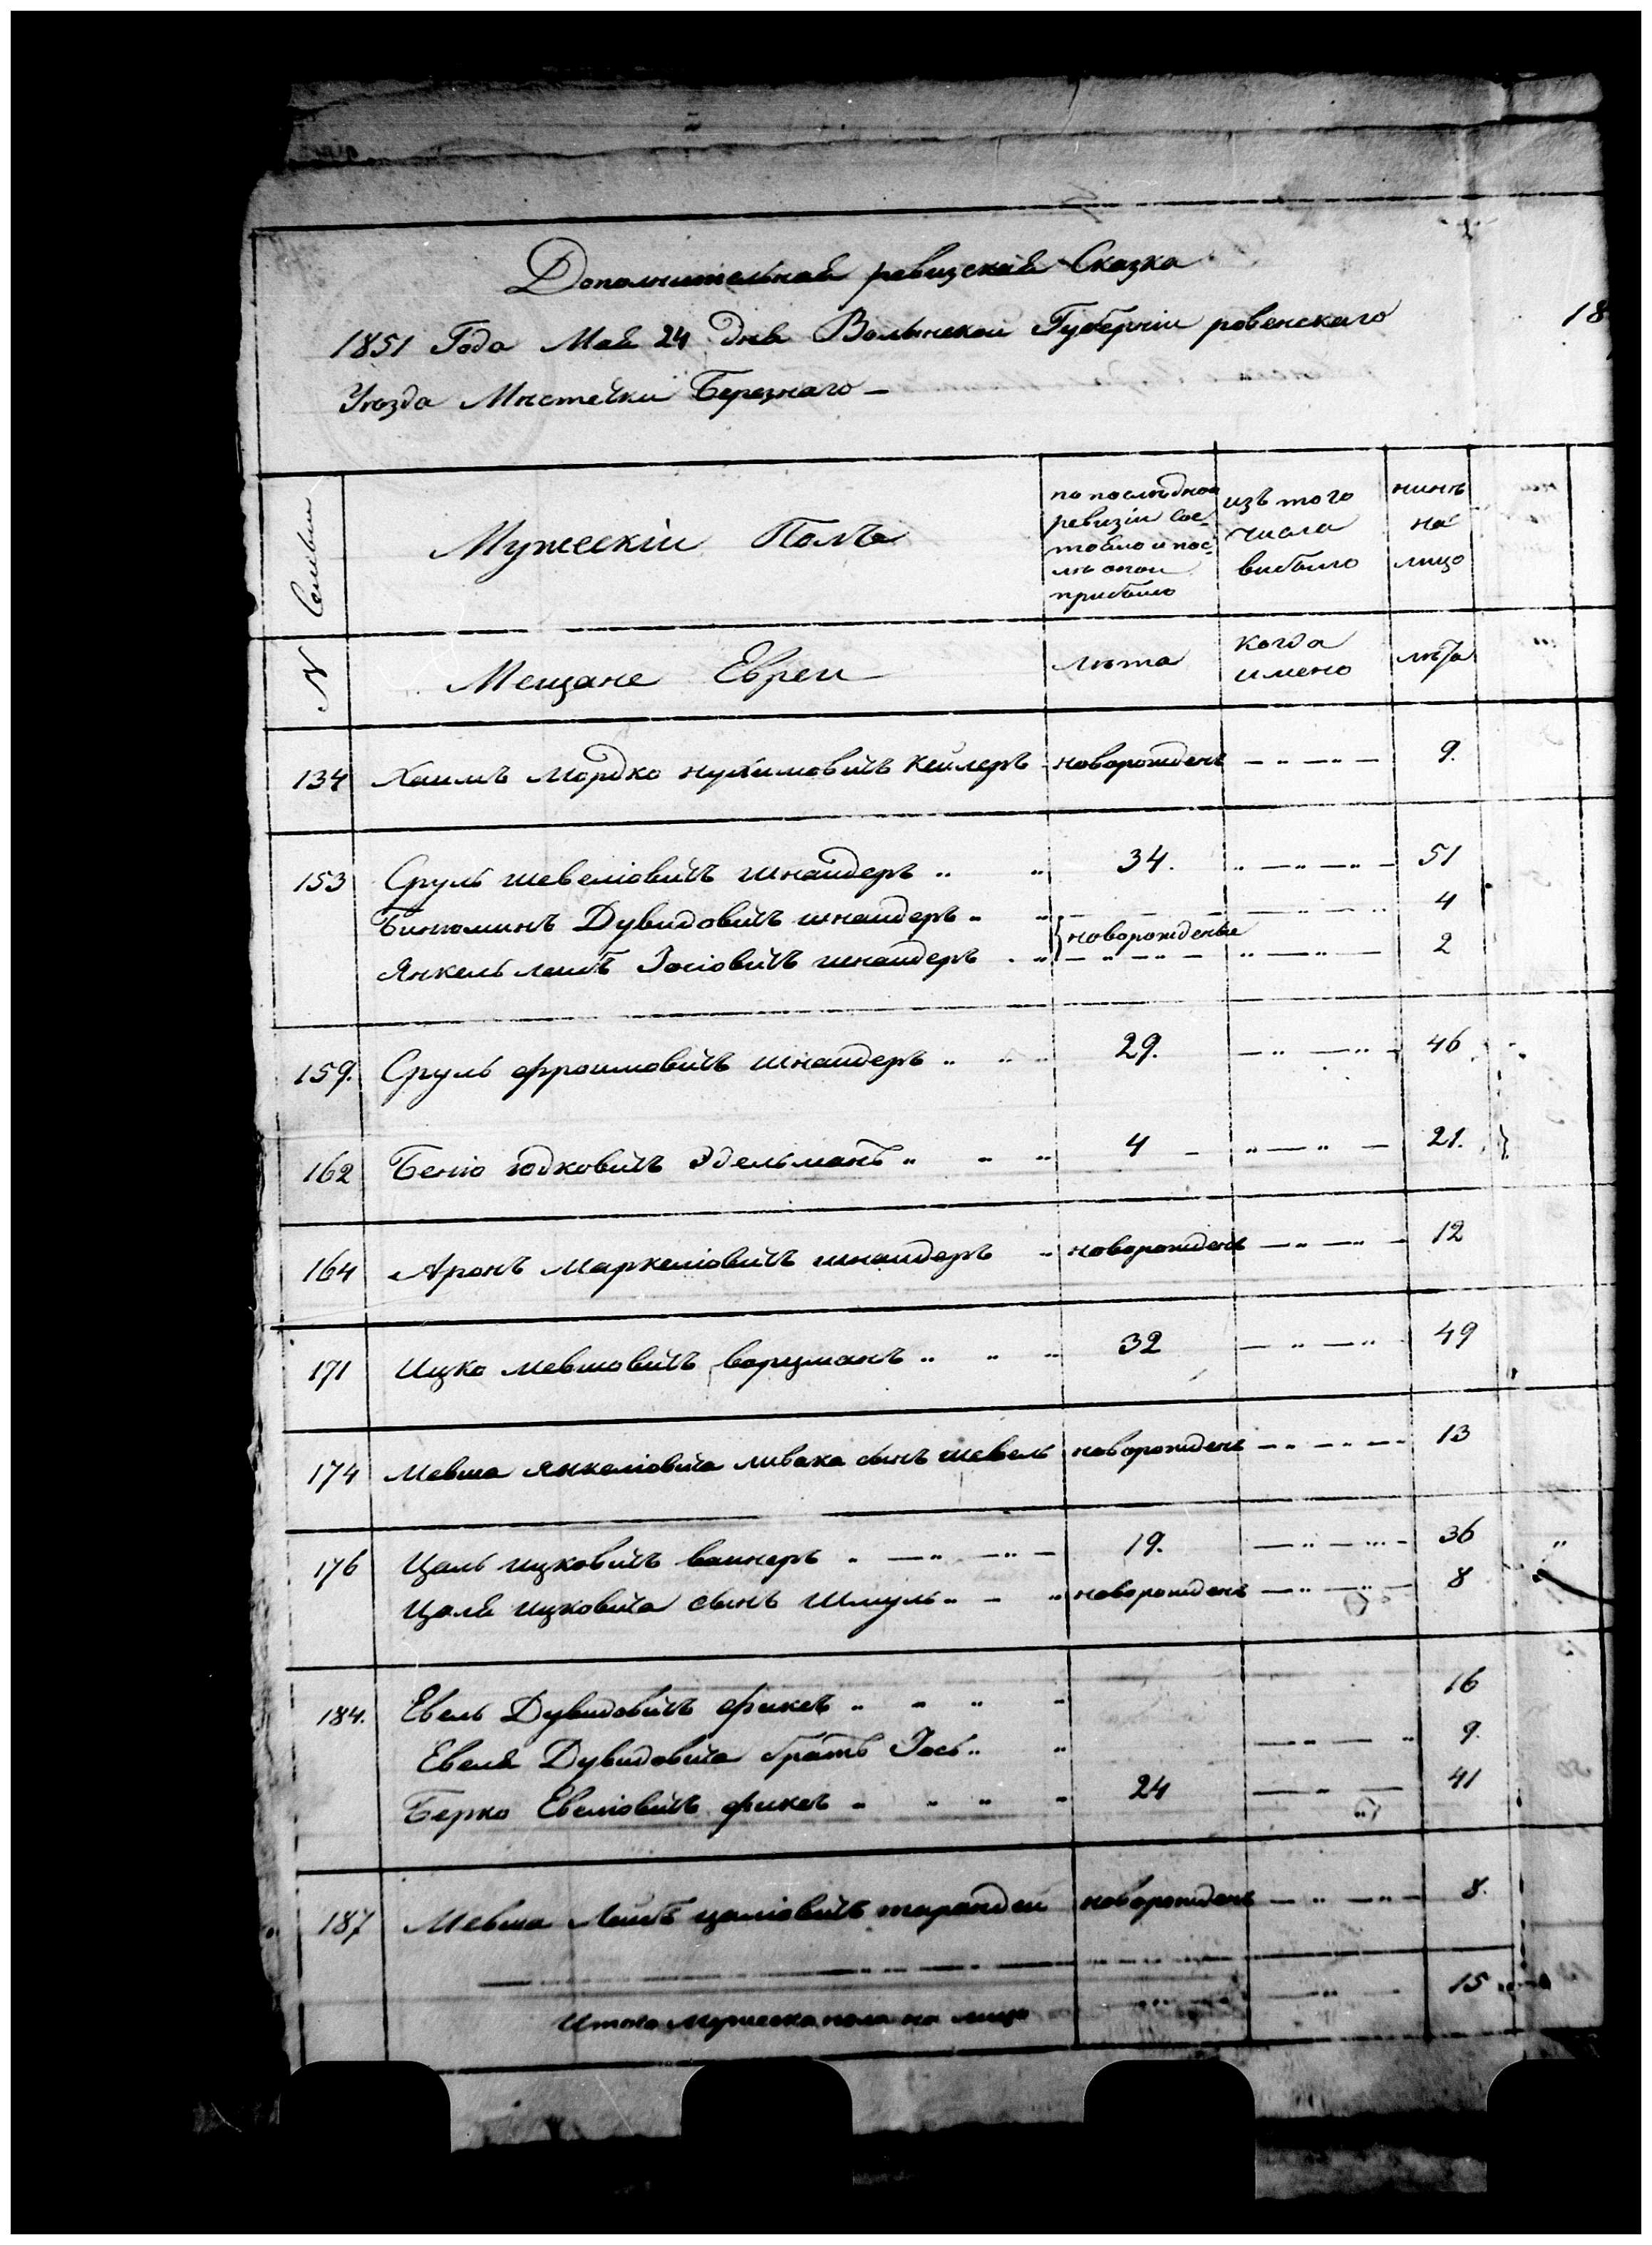 Дополнительная ревизская Сказка
1851 Года Мая 24 дня Волынской Губерніи ровенскаго
Уѣзда Мѣстечка Березнаго —
18
N Семьи
Мужескій Полъ
по послѣдной
ревизіи сос-
тояло и пос-
лѣ оной
прибыло
изъ того
числа
выбыло
нинѣ
на
лицо
Мещане Евреи
лѣта
когда
имено
лѣта
134 Хаимъ Мордко нухимовичъ Кейлеръ новорожденъ 9.
153 Сруль шевеліовичъ шнаидеръ 34. 51
Бинюминъ Дувидовичъ шнаидеръ 4
новорожденые
Янкель леибъ Іосіовичъ шнаидеръ 2
159. Сруль фроимовичъ шнаидеръ 29. 46
162 Беніо юдковичъ Эдельманъ 4 21.
164 Аронъ Маркеліовичъ шнаидеръ новорожденъ 12
171 Ицко мевшовичъ ворцманъ 32 49
174 Мевша янкеліовича ливака сынъ шевель новорожденъ 13
176 Цаль ицковичъ ваинеръ 19. 36
Цаля ицковича сынъ Шмуль новорожденъ 8
184. Евель Дувидовичъ фиксъ 16
Евеля Дувидовича братъ Іось 9.
Берко Евеліовичъ фиксъ 24 41
187 Мевша Леибъ цаліовичъ тарандеи новорожденъ 8.
Итого Мужеска пола на лицо 15